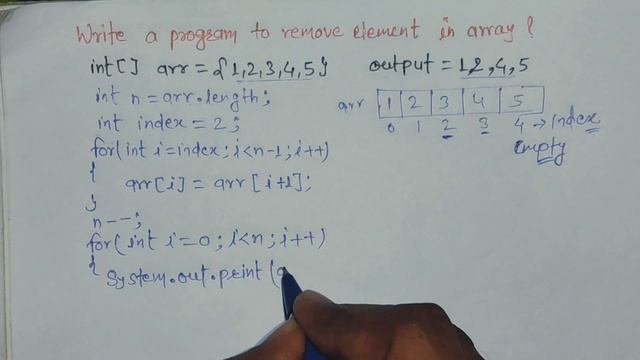 Write a program to remove element in array?
int[] arr = {1,2,3,4,5}
output = 1,2,4,5
int n = arr.length;
int index = 2;
for(int i=index; i<n-1; i++)
{
arr[i] = arr[i+1];
}
n--;
for(int i=0; i<n; i++)
{ System.out.print(a
arr 1 2 3 4 5
0 1 2 3 4 → index
empty